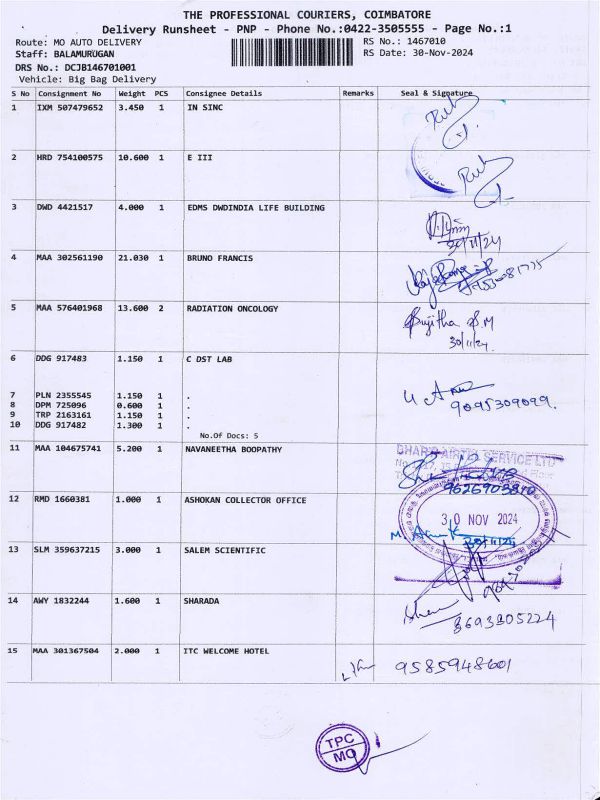 THE PROFESSIONAL COURIERS, COIMBATORE
Delivery Runsheet - PNP - Phone No.:0422-3505555 - Page No.:1
Route: MO AUTO DELIVERY
Staff: BALAMURUGAN
DRS No.: DCJB146701001
Vehicle: Big Bag Delivery
RS No.: 1467010
RS Date: 30-Nov-2024
S No Consignment No Weight PCS Consignee Details Remarks Seal & Signature
1 IXM 507479652 3.450 1 IN SINC
2 HRD 754100575 10.600 1 E III
3 DWD 4421517 4.000 1 EDMS DWDINDIA LIFE BUILDING
30/11/24
4 MAA 302561190 21.030 1 BRUNO FRANCIS
5 MAA 576401968 13.600 2 RADIATION ONCOLOGY
Sujitha S.M
30/11/24.
6 DDG 917483 1.150 1 C DST LAB
7 PLN 2355545 1.150 1 .
8 DPM 725096 0.600 1 .
9 TRP 2163161 1.150 1 .
10 DDG 917482 1.300 1 .
9095309099.
No.Of Docs: 5
11 MAA 104675741 5.200 1 NAVANEETHA BOOPATHY
SERVICE LTD
12 RMD 1660381 1.000 1 ASHOKAN COLLECTOR OFFICE
30 NOV 2024
30/11/24
13 SLM 359637215 3.000 1 SALEM SCIENTIFIC
14 AWY 1832244 1.600 1 SHARADA
8693805224
15 MAA 301367504 2.000 1 ITC WELCOME HOTEL
9585948601
TPC
MO